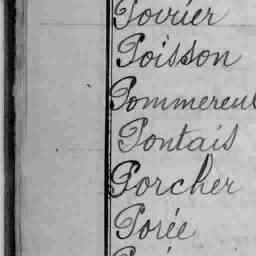 Poirier
Poisson
Pommereul
Pontais
Porcher
Porée